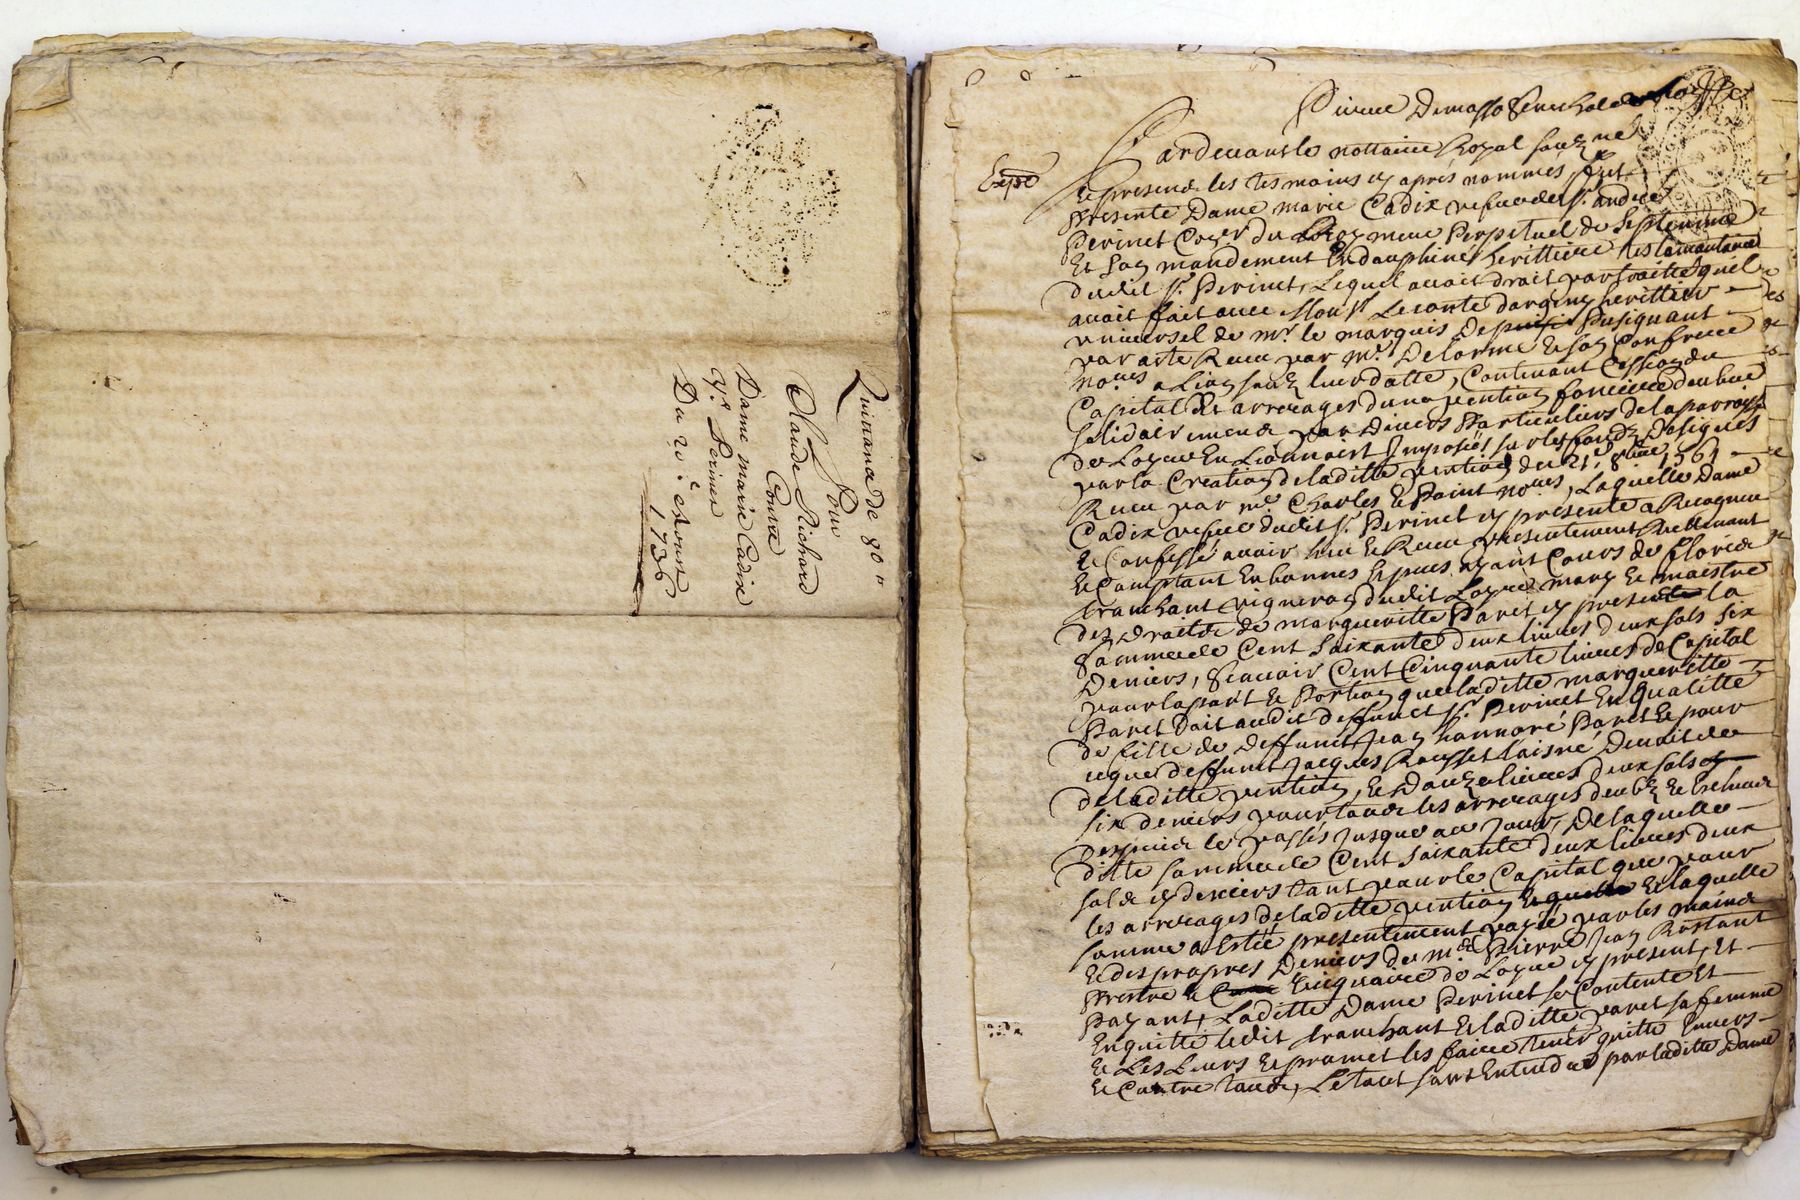 Quittance de 80 ll
Pour
Claude Richard
Contre
Dame marie Cadix
Vve Perinet
Du 20e aoust
1736
Pardevant le nottaire Royal souz ne
Expé
Et presens les tesmoins cy aprés nommés fut
Presente Dame marie Cadix vefve de Sr. andré
Perinet Coner du Roy maire Perpetuel de Septemme
Et son mandement En dauphiné, herittiere testamantaire
dudit Sr. Perinet, Lequel avoit droit par traitté quil
avoit fait avec Monsr. Le conte dargeny herittier
universel de mr. le marquis De Pusignant
par acte Receu par Me. Delorme & son Confrere
nores a Lion souz leur datte, Contenant Cession du
Capital Et arrerages d'une pention fonciere deube
solidairement par Divers Particuliers de la parroisse
de Loyre En Lionnois Imposée sur les fondz Designés
par la Creation de laditte pention du 21e. 8bre 1561
Receu par me. Charles & Point nores, Laquelle Dame
Cadix vefve dudit Sr. Perinet cy presente a Recogneu
Et Confessé avoir heu & Receu presentement Reellemant
Et Comptant En bonnes Espices ayant Cours de Floris
tranchant vigneron dudit Loyre mary Et maistre
des droitz de margueritte Paret cy presente la
Somme de Cent soixante deux livres deux sols six
Deniers, Scavoir Cent Cinquante livres de Capital
pour la part & Portion que laditte margueritte
Paret Doit audit deffunct Sr. Perinet En qualitté
de fille de deffunct Jean honnoré Paret & pour
deffunct Jacques Rousset laisné Devoit de
de laditte pention, & Douze livres deux sols
six deniers pour tous les arrerages deubz & escheus
Despuis le passés Jusques a ce Jour, De laquelle
ditte somme de Cent soixante deux livres deux
sols six deniers tant pour le Capital que pour
les arrerages de laditte pention & laquelle
somme a Estée presentement payée par les mains
Et des propres Deniers de me. Pierre Jean Rostant
Prestre Et Vicquaire de Loyre cy present, Et
Payant, Laditte Dame Perinet se Contente Et
En quitte ledit tranchant Et laditte paret sa femme
Et Les Leurs Et promet les faire tenir quitte Envers
Et Contre tous, Le tout sans Entendre par laditte Dame